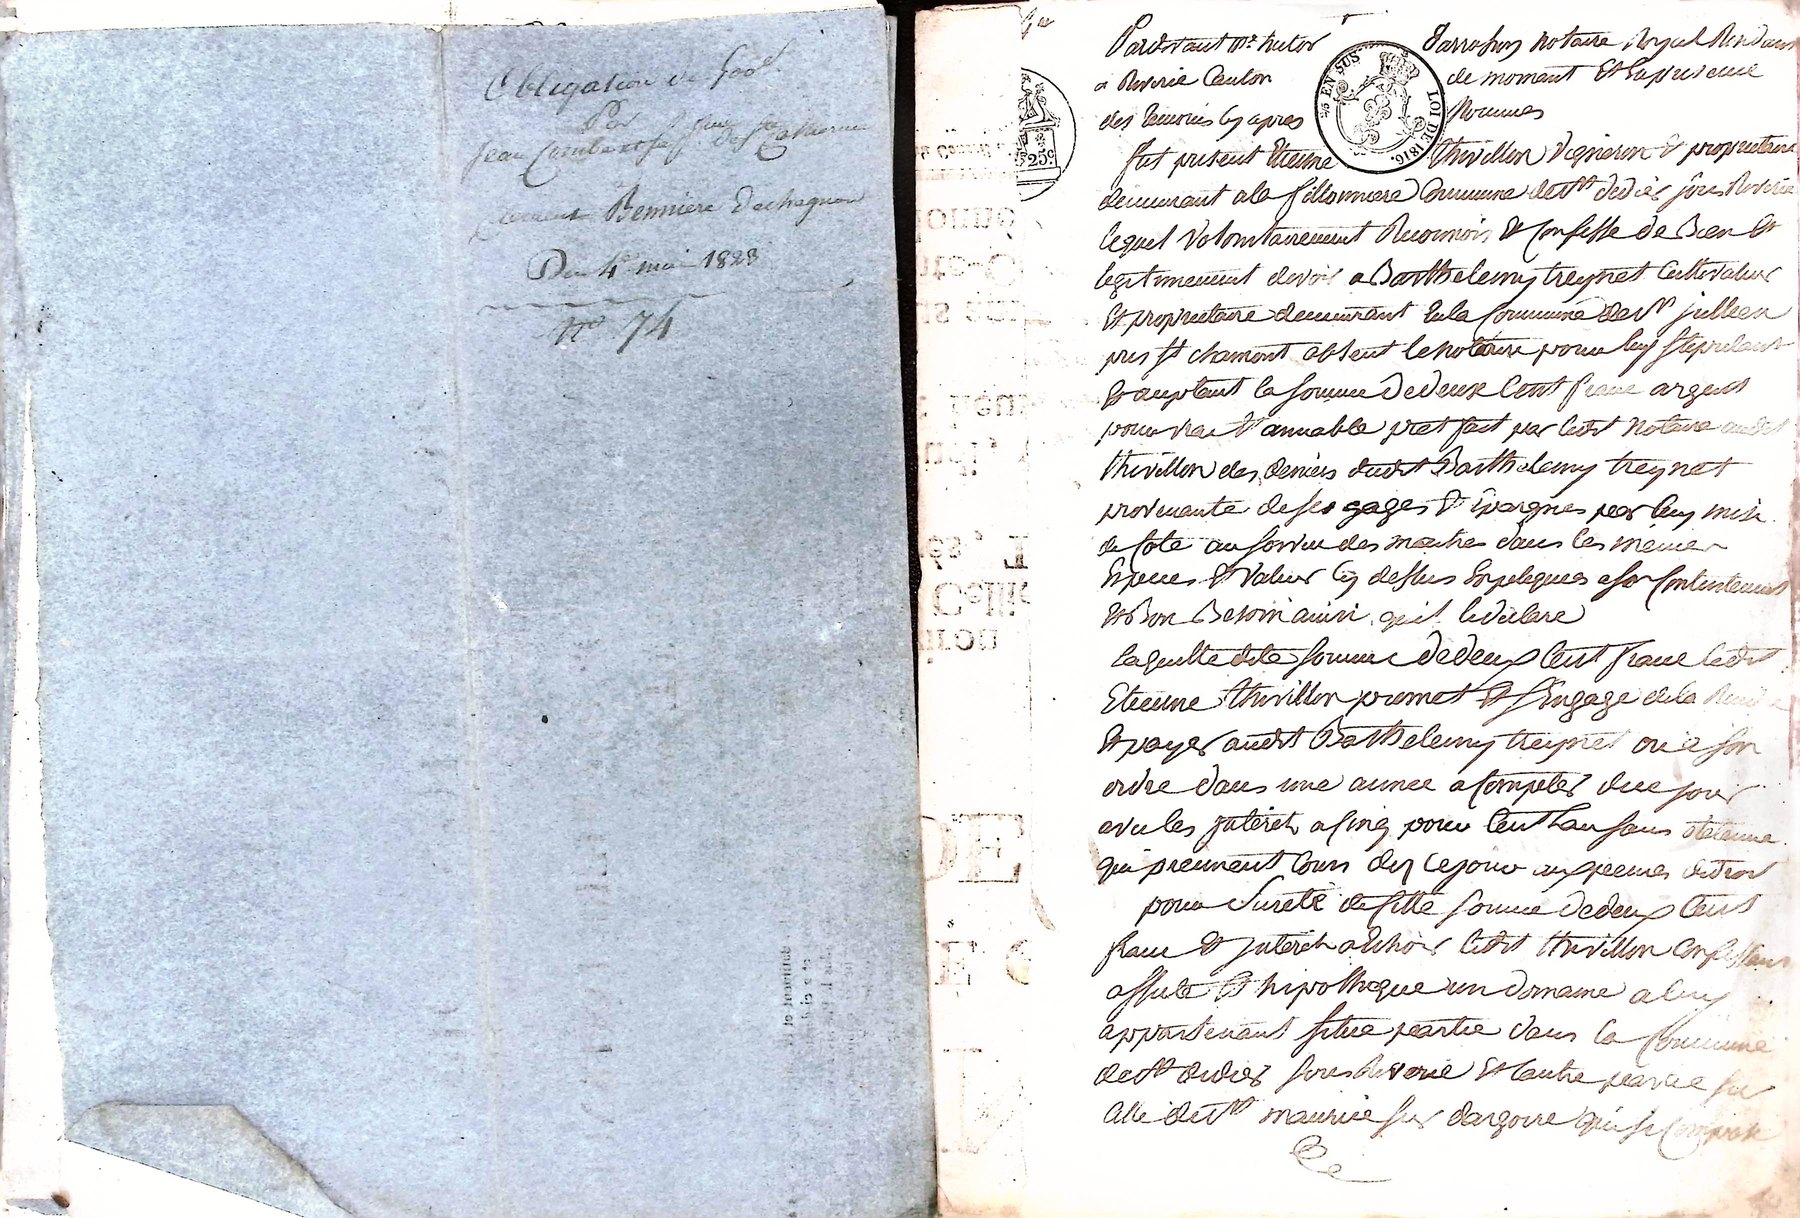 Obligation de 900f
Par
Jean
Bennière
Du 4e mai 1828
No 74
Pardevant me hutor Darrason notaire Royal Résidant
a Riverie Canton de mornant Et En présence
des temoins cy apres Nommés
25 EN SUS
LOI DE 1816.
25c
fut présent Etienne thivillon Vigneron & propriétaire
demeurant a la fillonniere Commune de st didier sous Riverie
lequel Volontairement Reconnois & Confesse de Bien Et
legitimement devoir a Barthelemy treynet Cultivateur
Et propriétaire demeurant En la Commune de st jullien
pres st chamont absent le notaire pour luy stipulant
Et acceptant la somme de deux Cent franc argent
pour vrai & amiable pret fait par ledit notaire audit
thivillon des deniers dudit Barthelemy treynet
provenante de ses gages & Epargnes par luy mise
de Cote au service des maitres dans les mèmes
Especes & Valeur cy dessus Expliquées a son Contentement
Et Bon Besoin ainsi qu'il le déclare
laquelle dite somme de deux Cent franc ledit
Etienne thivillon promet Et s'Engage de la
Et payer audit Barthelemy treynet ou a son
ordre dans une année a Compter de ce jour
avec les jnteret a cinq pour Cent l'an sans Retenue
qui prennent Cours dez ce jour aux peines de droit
pour Sureté de cette somme de deux Cent
franc Et jnteret a Echoir ledit thivillon Confessant
affecte Et hipotheque un domaine a luy
appartenant situé partie dans la Commune
de st didier sous Riverie Et l'autre partie sur
Celle de st maurice sur dargoire qui se Compose